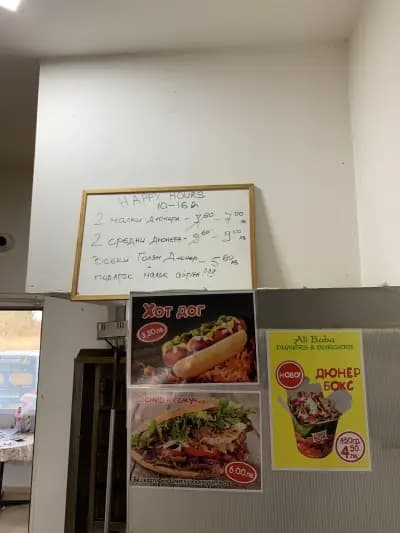 HAPPY HOURS
10-16ч
2 малки Дюнера - 7⁶⁰ - 7⁰⁰ лв
2 средни Дюнера - 9⁰⁰ лв
Всеки Голям Дюнер - 5⁸⁰ лв
подарък малък айрян!!!
ХОТ ДОГ
3,20лв
6.00лв.
Ali Baba
DUNERS & BURGERS
НОВО!
ДЮНЕР
БОКС
450гр.
4.50
лв.